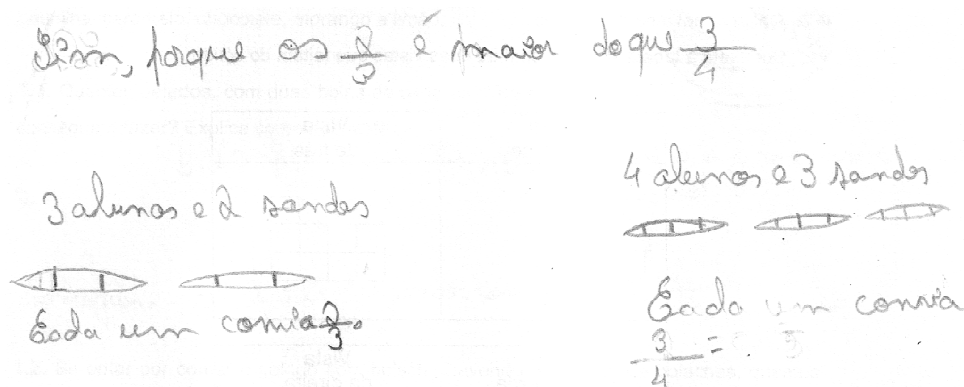 Sim, porque os 2/3 é maior do que 3/4
3 alunos e 2 sandes
Cada um comia 2/3.
4 alunos e 3 sandes
Cada um comia
3/4 =